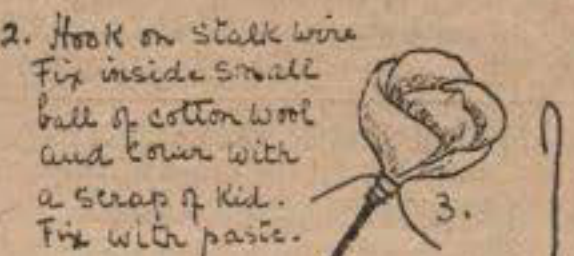 2. Hook on stalk wire
Fix inside small
ball of cotton wool
and cover with
a scrap of kid.
Fix with paste.
3.